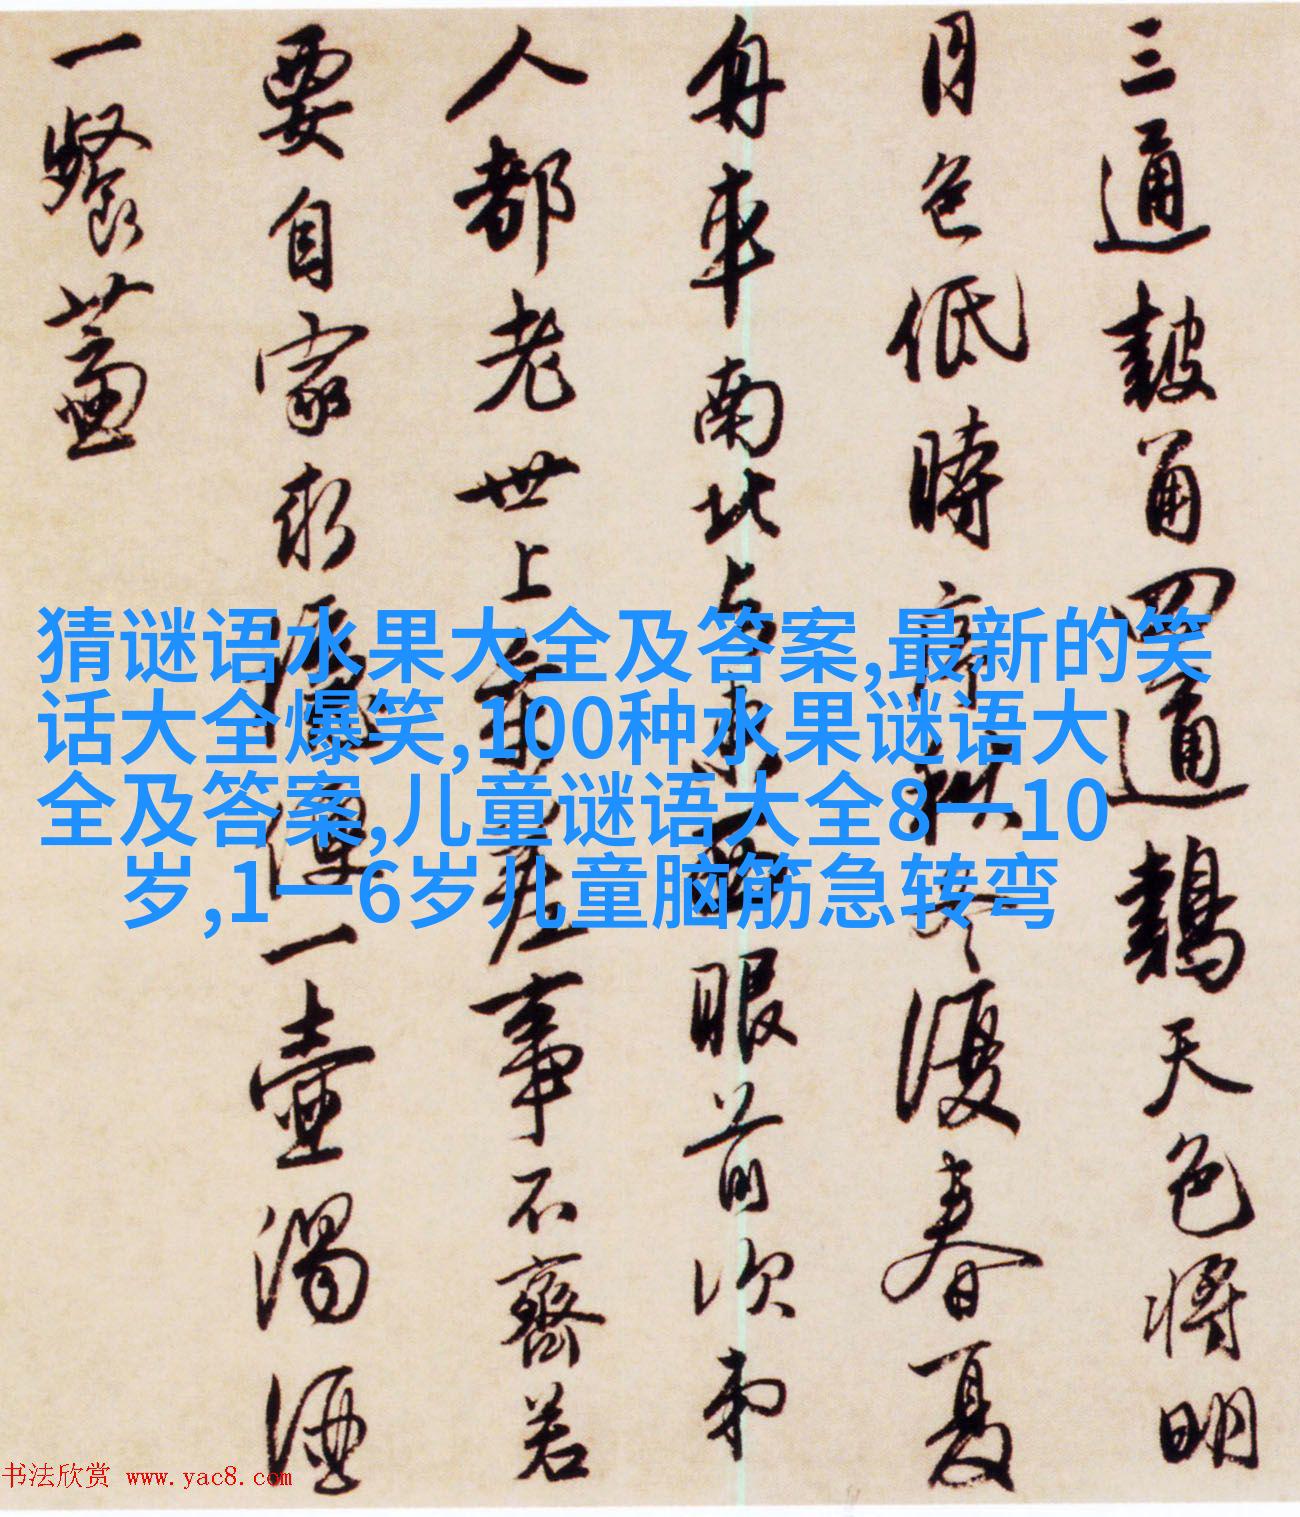 三通鼓角四通鷄天色將明
月色低時序秋冬復春夏
舟車南北与東西眼前次第
人都老世上參差事不齊若
要自家求穩便一壺濁酒
一餐虀
猜谜语水果大全及答案,最新的笑
话大全爆笑,100种水果谜语大
全及答案,儿童谜语大全8一10
岁,1一6岁儿童脑筋急转弯
书法欣赏 www.yac8.com